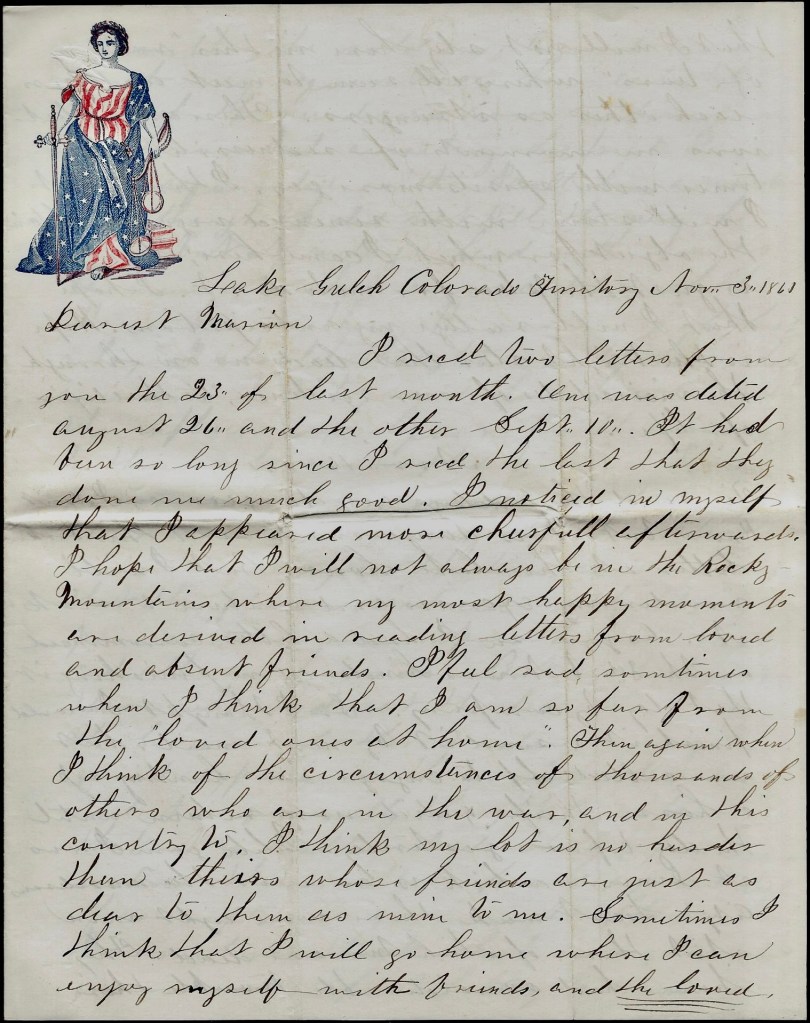 Leake Gulch Colorado Territory Nov. 3" 1861
Dearest Marion
I recd two letters from
you the 23" of last month. One was dated
august 26" and the other Sept" 10". It had
been so long since I recd the last that they
done me much good. I noticed in myself
that I appeared more cheerfull afterwards.
I hope that I will not always be in the Rocky
Mountains where my most happy moments
are derived in reading letters from loved
and absent friends. I feel sad, sometimes
when I think that I am so far from
the "loved ones at home". Then again when
I think of the circumstances of thousands of
others who are in the war, and in this
country to. I think my lot is no harder
then theirs whose friends are just as
dear to them as mine to me. Sometimes I
think that I will go home where I can
enjoy myself with friends, and the loved.